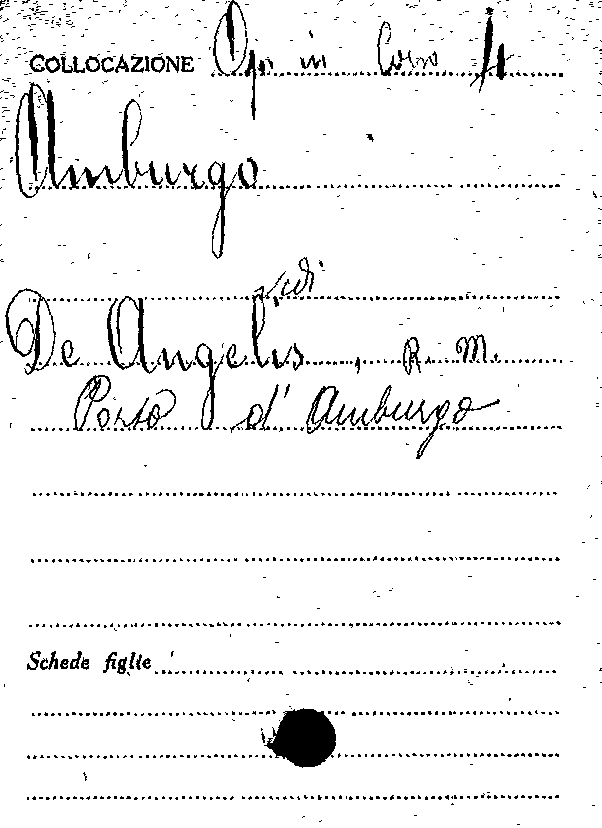 COLLOCAZIONE Op in Corso 4
Amburgo
vedi
De Angelis, R. M.
Porto d'Amburgo
Schede figlie